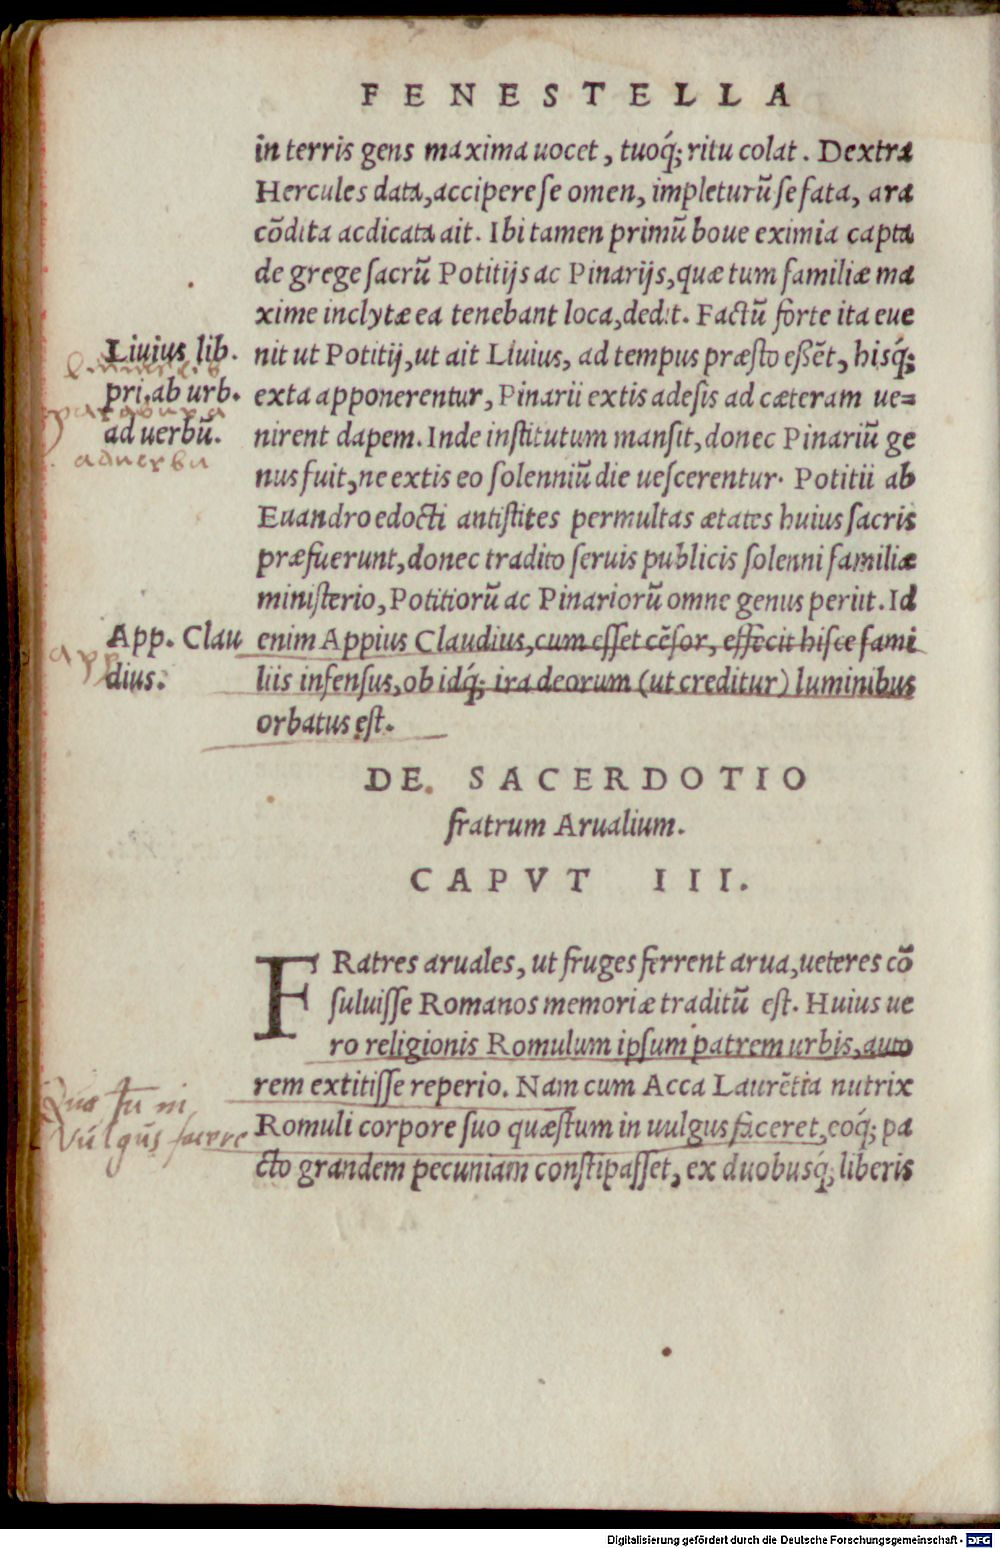 FENESTELLA
in terris gens maxima uocet, tuoq́; ritu colat. Dextra
Hercules data, accipere se omen, impleturũ se fata, ara
cõdita acdicata ait. Ibi tamen primũ boue eximia capta
de grege sacrũ Potitijs ac Pinarijs, quæ tum familiæ ma
xime inclytæ ea tenebant loca, dedit. Factũ forte ita eue
Liuius lib.
nit ut Potitij, ut ait Liuius, ad tempus præsto eßẽt, hisq́;
pri. ab urb.
exta apponerentur, Pinarii extis adesis ad cæteram ue=
ad uerbũ.
nirent dapem. Inde institutum mansit, donec Pinariũ ge
aduerbu
nus fuit, ne extis eo solenniũ die uescerentur. Potitii ab
Euandro edocti antistites permultas ætates huius sacris
præfuerunt, donec tradito seruis publicis solenni familiæ
ministerio, Potitiorũ ac Pinariorũ omne genus periit. Id
App. Clau
enim Appius Claudius, cum esset cẽsor, effecit hisce fami
App
dius.
liis infensus, ob idq́; ira deorum (ut creditur) luminibus
orbatus est.
DE SACERDOTIO
fratrum Arualium.
CAPVT III.
FRatres aruales, ut fruges ferrent arua, ueteres cõ
suluisse Romanos memoriæ traditũ est. Huius ue
ro religionis Romulum ipsum patrem urbis, auto
rem extitisse reperio. Nam cum Acca Laurẽtia nutrix
Vulgus facere
Romuli corpore suo quæstum in uulgus faceret, eoq́; pa
cto grandem pecuniam constipasset, ex duobusq́; liberis
Digitalisierung gefördert durch die Deutsche Forschungsgemeinschaft - DFG